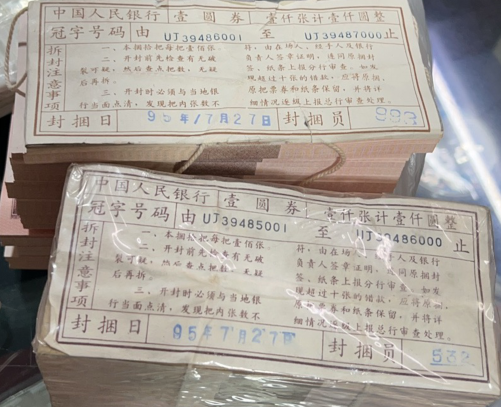 中国人民银行 壹圆券 壹仟张计壹仟圆整
冠字号码 由 UJ39486001 至 UJ39487000 止
拆封注意事项
一、本捆拾把每把壹佰张
二、开封前先检查有无破
裂可疑,然后查点把数,无疑
后再拆。
三、开封时必须与当地银
行当面点清,发现把内张数不
符,由在场人、经手人及银行
负责人签章证明,连同原捆封
签、纸条上报分行审查。如发
现超过十张的错款,应将原捆
原把票券和纸条保留,并将详
细情况逐级上报总行审查处理。
封捆日 95/7月27日 封捆员
中国人民银行 壹圆券 壹仟张计壹仟圆整
冠字号码 由 UJ39485001 至 UJ39486000 止
拆封注意事项
一、本捆拾把每把壹佰张
二、开封前先检查有无破
裂可疑,然后查点把数,无疑
后再拆。
三、开封时必须与当地银
行当面点清,发现把内张数不
符,由在场人、经手人及银行
负责人签章证明,连同原捆封
签、纸条上报分行审查。如发
现超过十张的错款,应将原捆
原把票券和纸条保留,并将详
细情况逐级上报总行审查处理。
封捆日 95年7月27日 封捆员